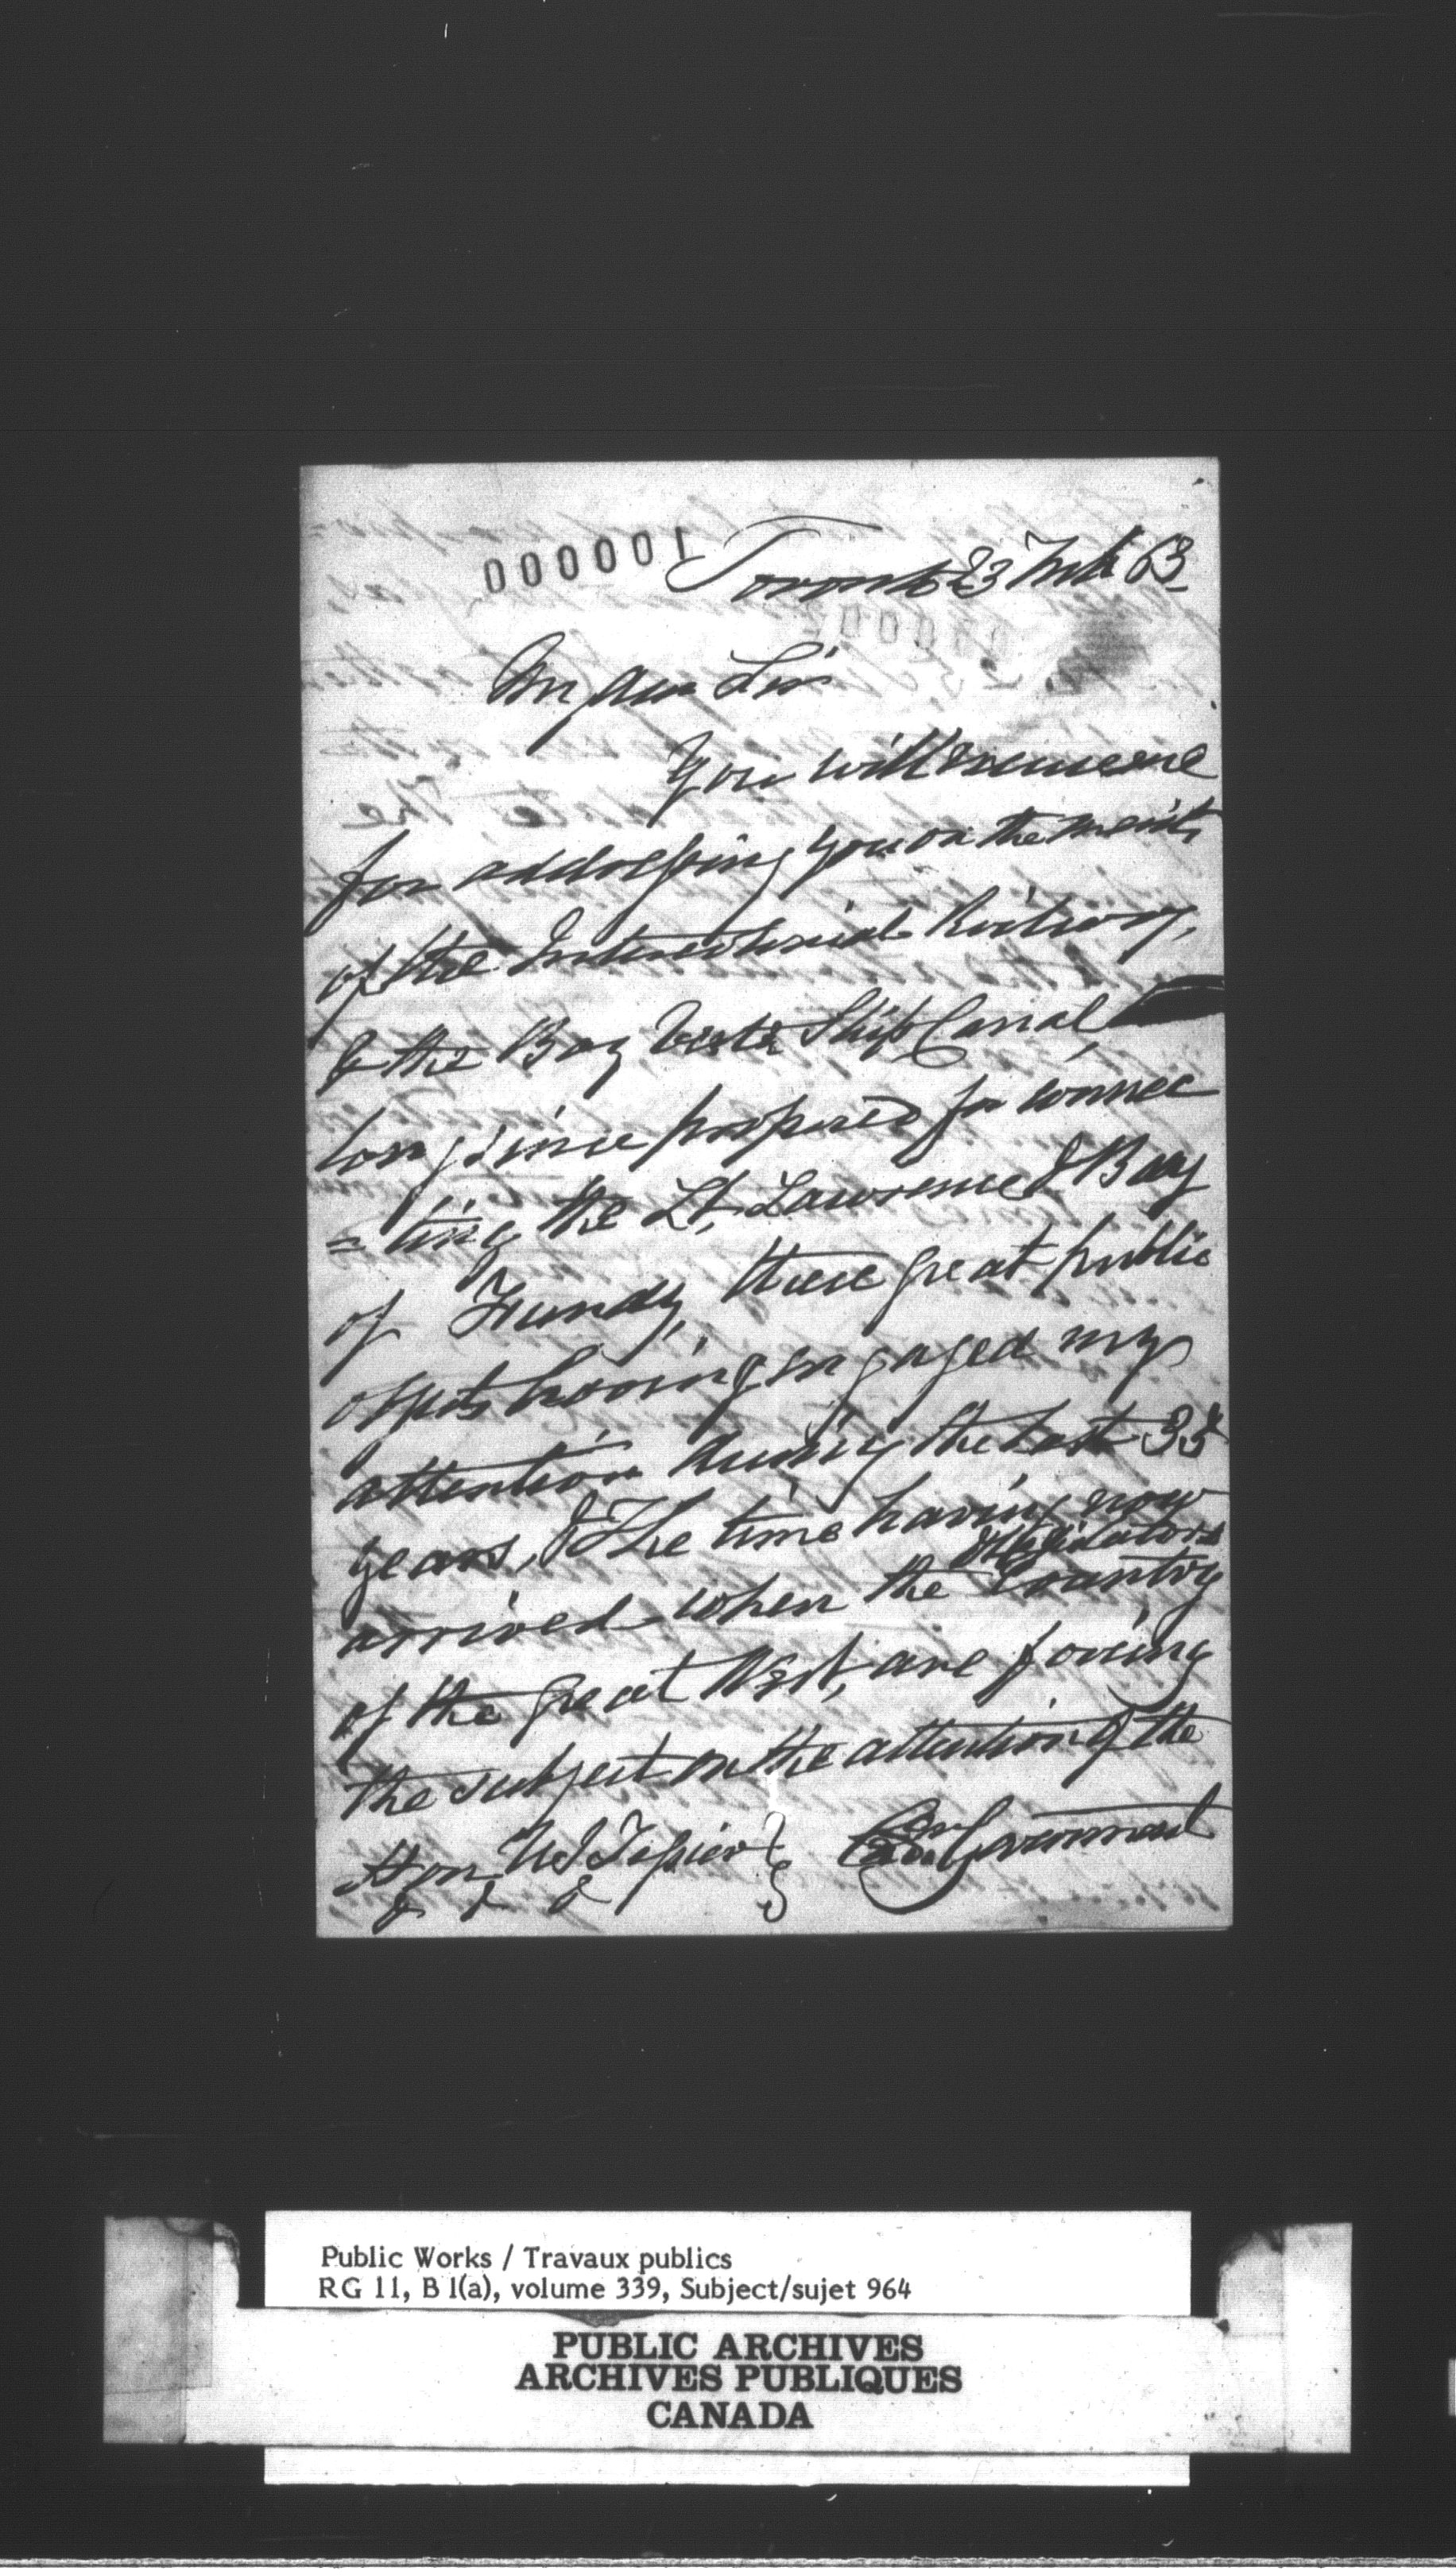 000001
Toronto 23 Feb 63
My dear Sir
You will excuse me
for addressing you on the merits
of the Intercolonial Railway,
& the Bay Verte Ship Canal,
long since proposed for connec
=ting the St. Lawrence & Bay
of Fundy, these great public
objects having engaged my
attention during the last 35
years, & The time having now
arrived when the Legislators
Country
of the great West, are forcing
the subject on the attention of the
Hon U J Tessier } Government
& & &
Public Works / Travaux publics
RG 11, B 1(a), volume 339, Subject/sujet 964
PUBLIC ARCHIVES
ARCHIVES PUBLIQUES
CANADA